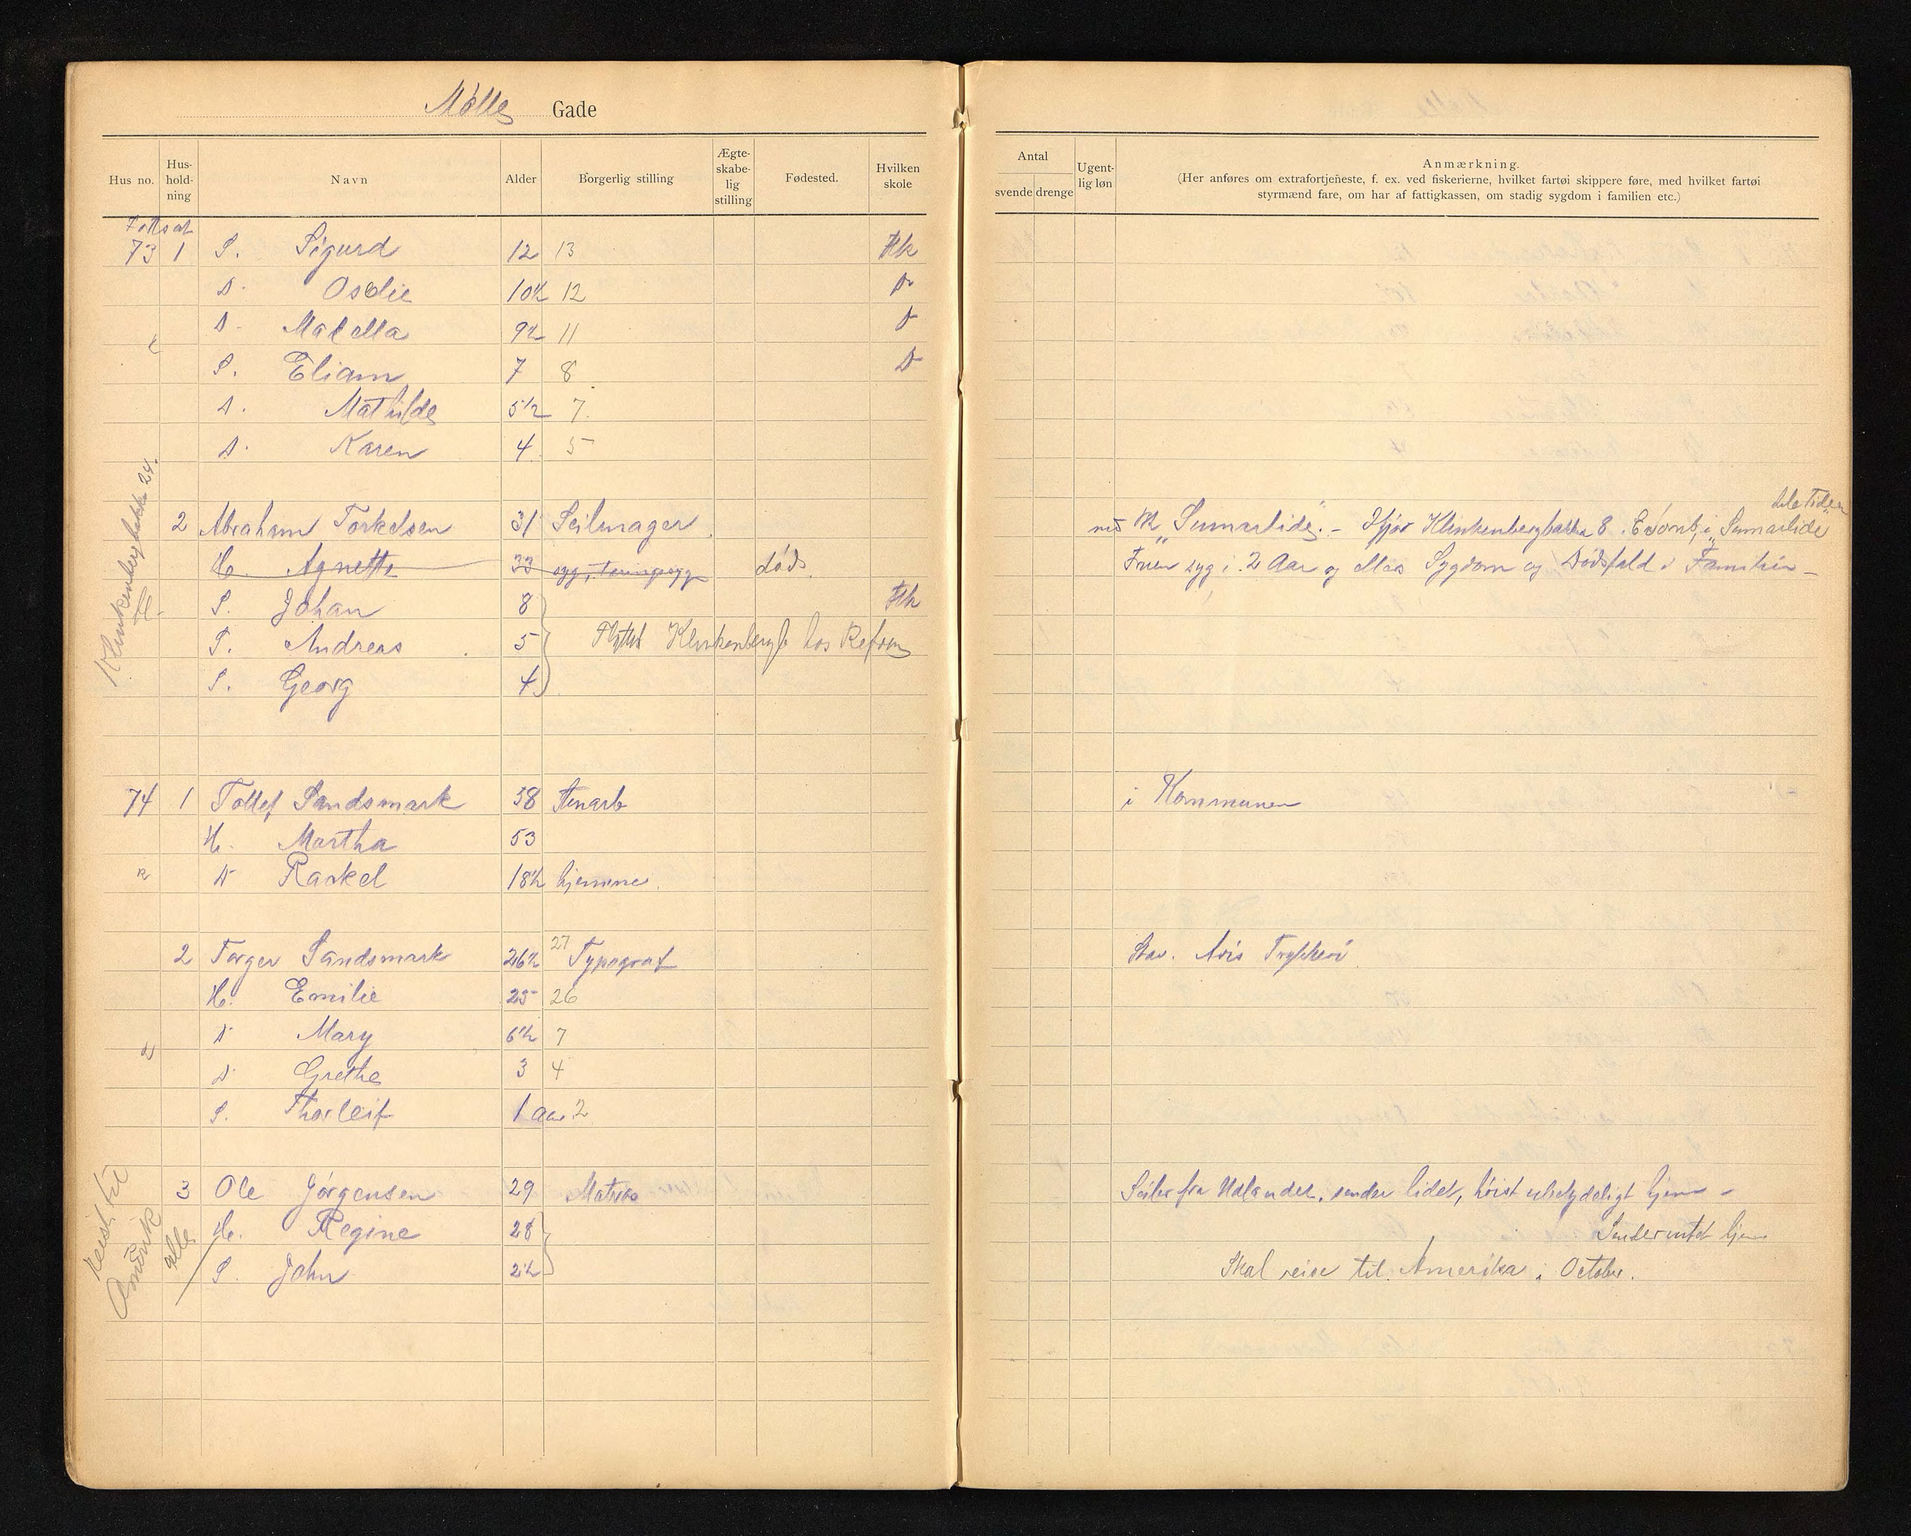 Mølle Gade
Hus no. Hus-hold-ning Navn Alder Borgerlig stilling Ægte-skabe-lig stilling Fødested. Hvilken skole
Antal svende drenge Ugent-lig løn Anmærkning.
(Her anføres om extrafortjeneste, f. ex. ved fiskerierne, hvilket fartøi skippere føre, med hvilket fartøi
styrmænd fare, om har af fattigkassen, om stadig sygdom i familien etc.)
Fortsat
73 1 S. Sigurd 12 13
D. 10½ 12
D. 9½ 11
S. Eliam 7 8
D. Mathilde 5½ 7
D. Karen 4 5
Klinkenbergbakke 24.
2 Abraham Torkelsen 31 Seilmager
H. Agnette 33 død
S. Johan 8
S. Andreas 5 Flyttet
S. Georg 4
"Sumarlide". - Klinkenbergbakke 8. i "Sumarlide"
hele Tiden
Fruen syg i 2 Aar og Sygdom og Dødsfald i Familien -
74 1 Tollef Sandsmark 58 Stenarb i Kommunen
H. Martha 53
D Rakel 18½ hjemme.
2 Torger Sandsmark 26½ 27 Typograf Stav. Avis Trykkeri
H. Emilie 25 26
D Mary 6½ 7
D Grethe 3 4
S. Thorleif 1 aar 2
reist til Amerik alle
3 Ole Jørgensen 29 Matros Seiler fra Udlandet, sender lidet, høist ubetydeligt hjem -
H. Regine 28 Sender intet hjem
S. John 2½ Skal reise til Amerika i October.